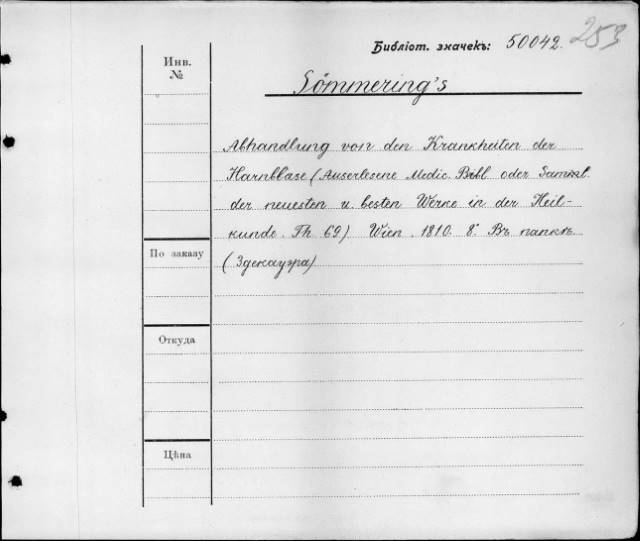 253
Библіот. значекъ: 50042.
Инв.
№
Sömmering's
Abhandlung von den Krankheiten der
Harnblase (Auserlesene Medic. Bibl. oder Samml.
der neuesten u. besten Werke in der Heil-
kunde. Th. 69). Wien. 1810. 8°. Въ папкѣ.
(Здекауэра)
По заказу
Откуда
Цѣна